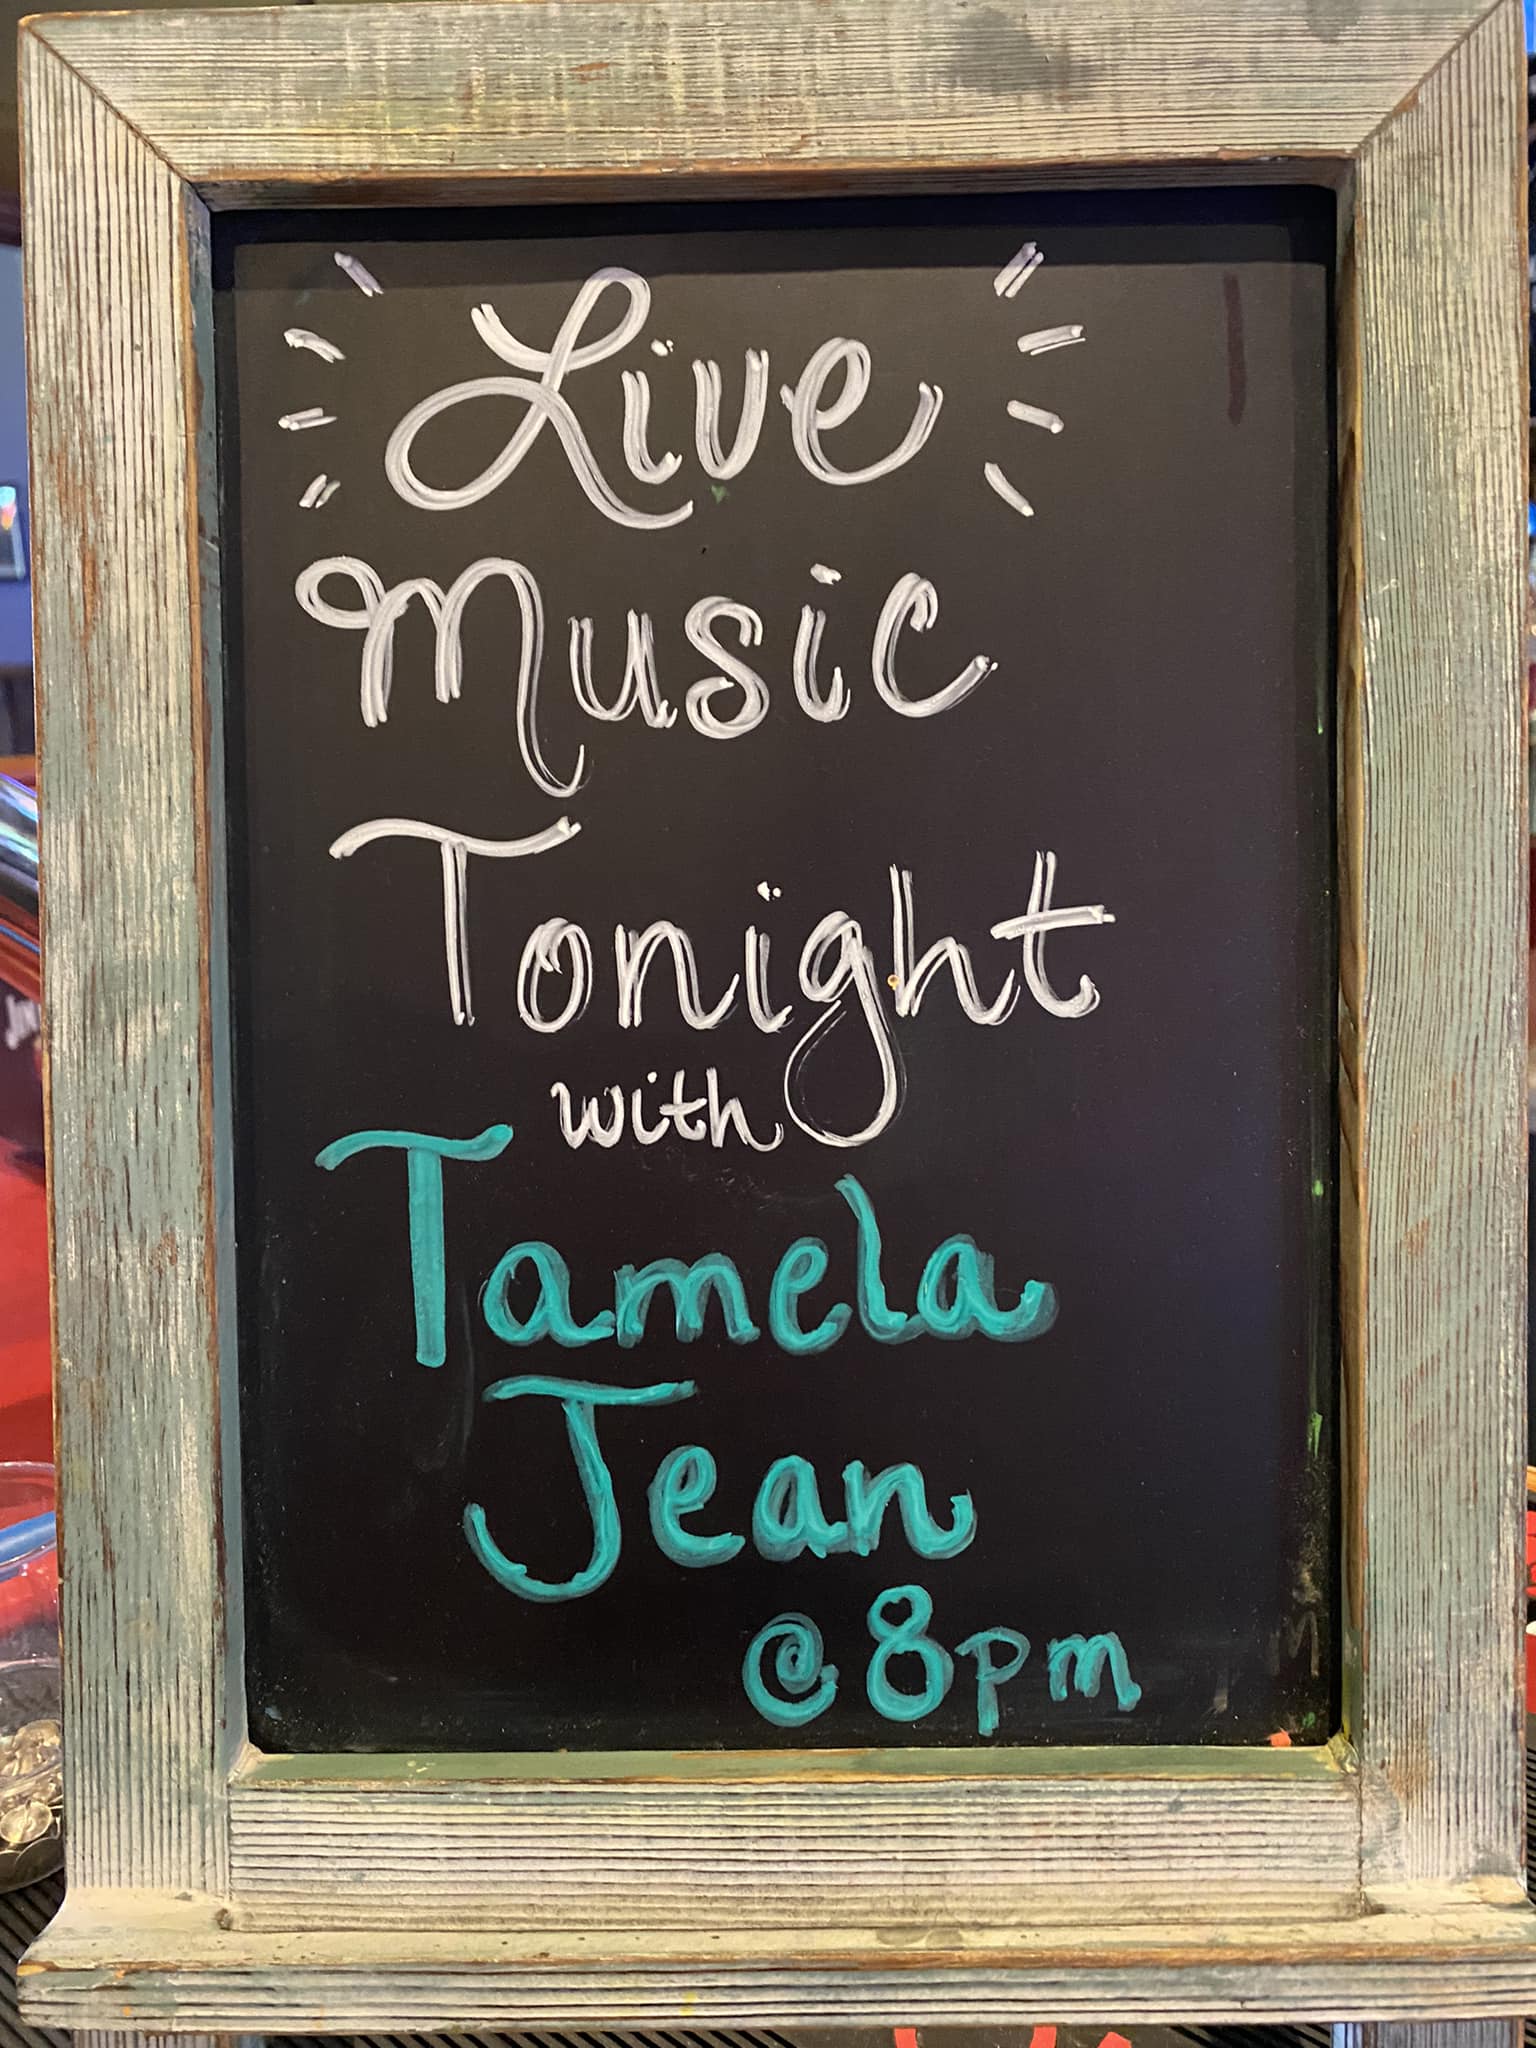 Live
Music
Tonight
with
Tamela
Jean
@ 8pm